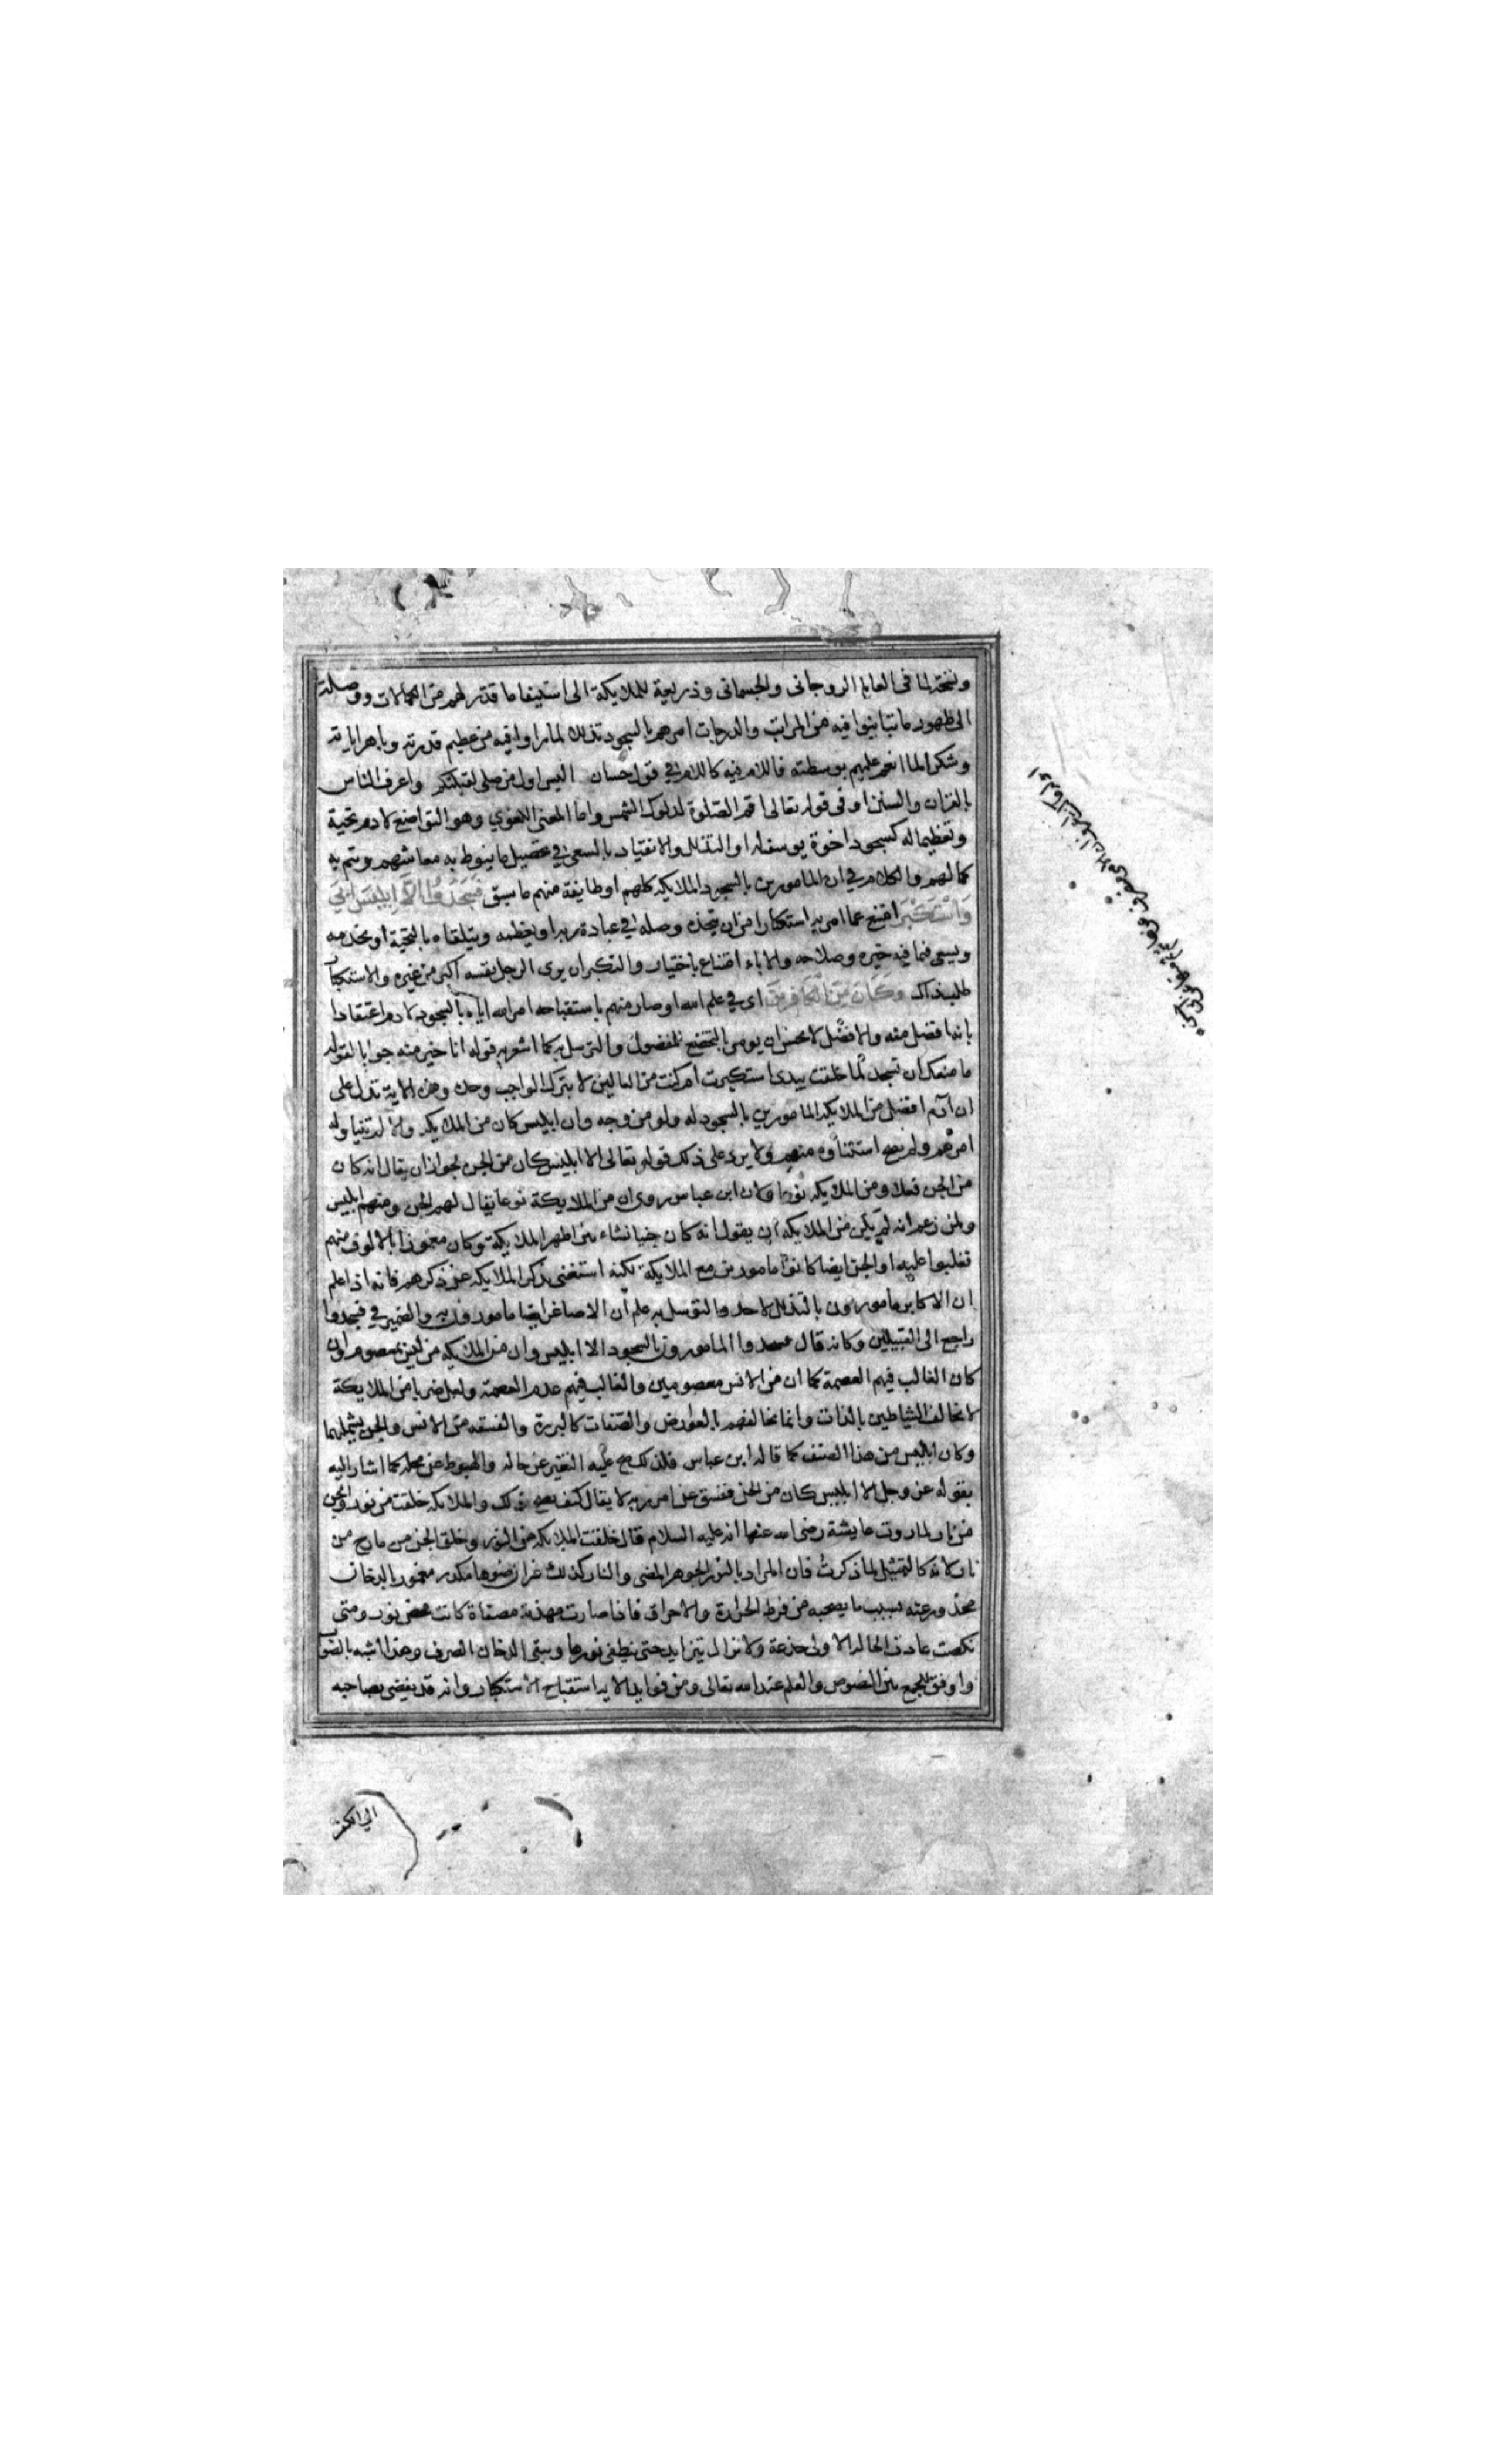 ونسخة لما فى العالم الروحانى والجسمانى وذريعة للملايكة الى استيفا ما قدر لهم من الكمالات ووصلة
الى ظهور ما تباينوا فيه من المراتب والدرجات امرهم بالسجود تذللا لما راوا فيه من عظيم قدرته وباهر اياته
وشكرا لما انعم عليهم بوسطته فاللام فيه كاللام في قول حسان اليس اول من صلى لقبلتكم واعرف الناس
بالقران والسنن او فى قوله تعالى اقم الصلوة لدلوك الشمس واما المعنى اللغوي وهو التواضع لادم تحية
وتعظيما له كسجود اخوة يوسف له او التذلل والانقياد بالسعي في تحصيل ما ينوط به معاشهم ويتم به
كمالهم والكلام في ان المامورين بالسجود الملايكة كلهم او طايفة منهم ما سبق فَسَجَدُوا اِلَّا اِبْلِيسَ اَبَى
وَاسْتَكْبَرَ امتنع عما امر به استكبارا من ان يتخذه وصلة في عبادة ربه او يعظمه ويتلقاه بالتحية او يخدمه
ويسعى فيما فيه خيره وصلاحه والاباء امتناع باختيار والتكبر ان يرى الرجل نفسه اكبر من غيره والاستكبار
طلب ذلك وَكَانَ مِنَ الْكَافِرِينَ اي في علم الله او صار منهم باستقباحه امر الله اياه بالسجود لادم اعتقادا
بانه افضل منه والافضل لا يحسن ان يومر بالتخضع للمفضول والتوسل به كما اشعر به قوله انا خير منه جوابا لقوله
ما منعك ان تسجد لما خلقت بيدي استكبرت ام كنت من العالين لا بترك الواجب وحده وهذه الاية تدل على
ان آدم افضل من الملايكة المامورين بالسجود له ولو من وجه وان ابليس كان من الملايكة والا لم يتناوله
امرهم ولم يصح استثناؤه منهم ولا يرد على ذلك قوله تعالى الا ابليس كان من الجن لجواز ان يقال انه كان
من الجن فعلا ومن الملايكة نوعا ولان ابن عباس روى ان من الملايكة نوعا يقال لهم الجن ومنهم ابليس
ولمن زعم انه لم يكن من الملايكة ان يقول انه كان جنيا نشاء بين اظهر الملايكة وكان مغمورا بالالوف منهم
فغلبوا عليه او الجن ايضا كانوا مامورين مع الملايكة لكنه استغنى بذكر الملايكة عن ذكرهم فانه اذا علم
ان الاكابر مامورون بالتذلل لاحد والتوسل به علم أن الاصاغر ايضا مامورون به والضمير في فسجدوا
راجع الى القبيلين وكانه قال فسجدوا المامورون بالسجود الا ابليس وان من الملايكة من ليس بمعصوم وان
كان الغالب فيهم العصمة كما ان من الانس معصومين والغالب فيهم عدم العصمة ولعل ضربا من الملايكة
لا يخالف الشياطين بالذات وانما يخالفهم بالعوارض والصفات كالبررة والفسقة من الانس والجن يشملهما
وكان ابليس من هذا الصنف كما قاله ابن عباس فلذلك صح عليه التغير عن حاله والهبوط عن محله كما اشار اليه
بقوله عز وجل الا ابليس كان من الجن ففسق عن امر ربه لا يقال كيف يصح ذلك والملايكة خلقت من نور والجن
من نار لما روت عايشة رضى الله عنها انه عليه السلام قال خلقت الملايكة من النور وخلق الجن من مارج من
نار لانه كالتمثيل لما ذكرت فان المراد بالنور الجوهر المضى والنار كذلك غير ان ضوها مكدر مغمور بالدخان
محذور عنه بسبب ما يصحبه من فرط الحرارة والاحراق فاذا صارت مهذبة مصفاة كانت محض نور ومتى
نكصت عادت الحالة الاولى جذعة ولا تزال تتزايد حتى ينطفى نورها ويبقى الدخان الصرف وهذا اشبه بالصواب
واوفق للجمع بين النصوص والعلم عند الله تعالى ومن فوايد الاية استقباح الاستكبار وانه قد يفضى بصاحبه
الى الكفر